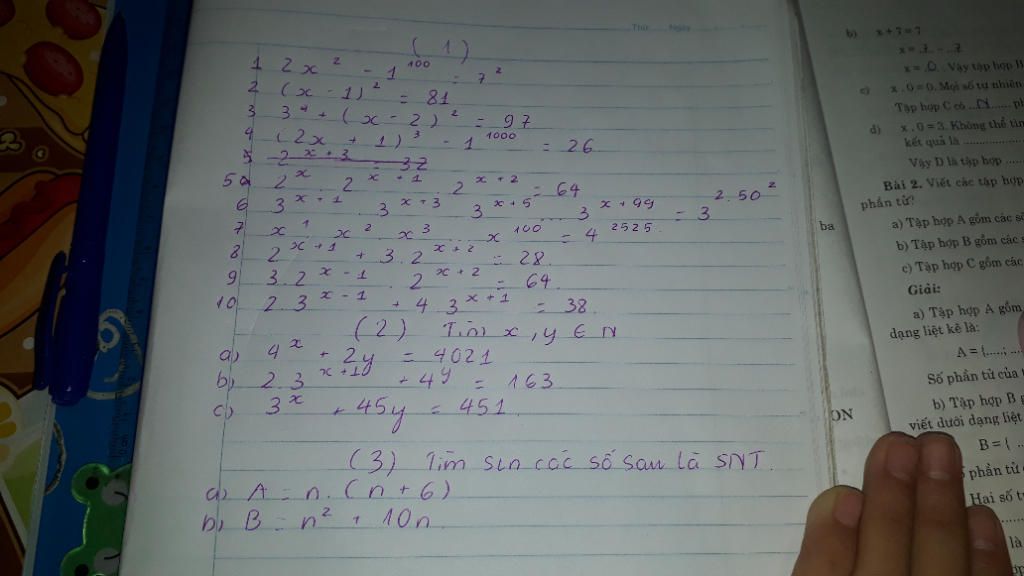 Thứ Ngày
(1)
1 2x² - 1¹⁰⁰ = 7²
2 (x - 1)² = 81
3 3⁴ + (x - 2)² = 97
4 (2x + 1)³ - 1¹⁰⁰⁰ = 26
5 2ˣ⁺³ = 32
5a 2ˣ . 2ˣ⁺¹ . 2ˣ⁺² = 64
6 3ˣ⁺¹ . 3ˣ⁺³ . 3ˣ⁺⁵ ... 3ˣ⁺⁹⁹ = 3^(2.50²)
7 x¹ . x² . x³ ... x¹⁰⁰ = 4²⁵²⁵.
8 2ˣ⁺¹ + 3.2ˣ⁺² = 28.
9 3.2ˣ⁻¹ . 2ˣ⁺² = 64.
10 2.3ˣ⁻¹ + 4.3ˣ⁺¹ = 38.
(2) Tìm x, y ∈ N
a) 4ˣ + 2y = 4021
b) 2.3ˣ⁺¹ + 4y = 163
c) 3ˣ + 45y = 451
(3) Tìm sln các số sau là SNT.
a) A = n.(n + 6)
b) B = n² + 10n
b) x + 7 = 7
x = 7 - 7
x = 0. Vậy tập hợp B
c) x . 0 = 0. Mọi số tự nhiên
Tập hợp C có ..N......
d) x . 0 = 3. Không thể tìm
kết quả là
Vậy D là tập hợp
Bài 2. Viết các tập hợp
phần tử?
a) Tập hợp A gồm các số
b) Tập hợp B gồm các
c) Tập hợp C gồm các
Giải:
a) Tập hợp A gồm
dạng liệt kê là:
A = {.....;
Số phần tử của
b) Tập hợp B
viết dưới dạng liệt
B = {
phần tử
Hai số
là
ba
ON